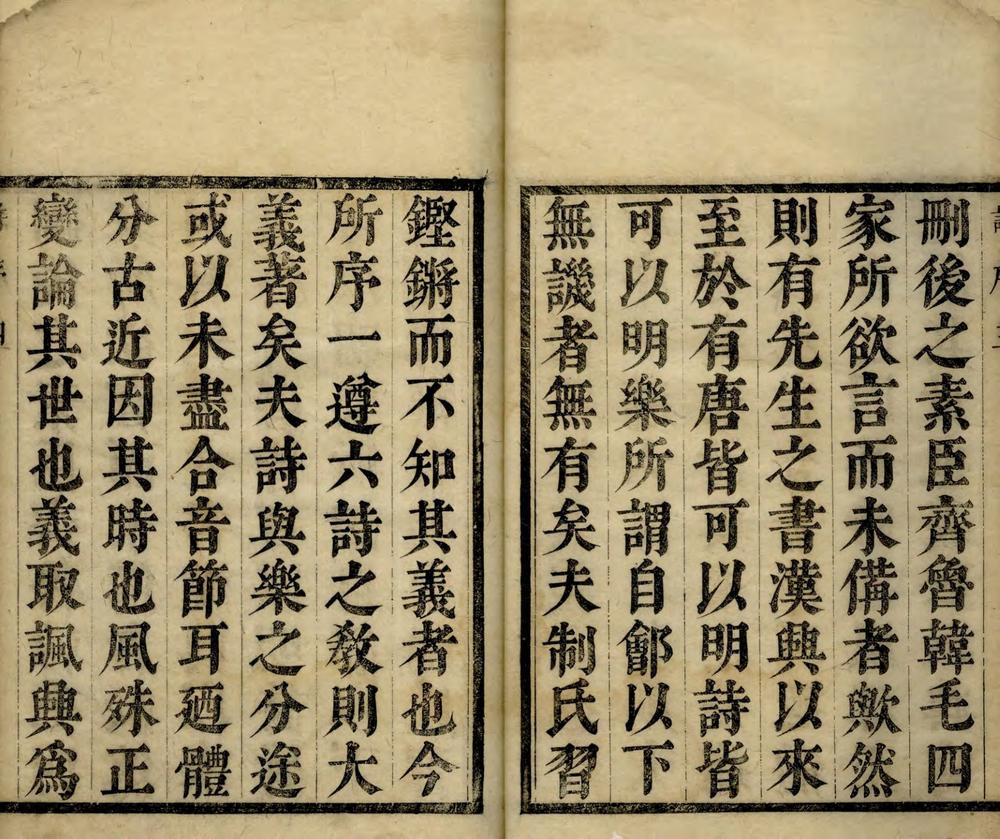 刪後之素臣齊魯韓毛四
家所欲言而未備者歟然
則有先生之書漢興以來
至於有唐皆可以明詩皆
可以明樂所謂自鄶以下
無譏者無有矣夫制氏習
鏗鏘而不知其義者也今
所序一遵六詩之教則大
義著矣夫詩與樂之分途
或以未盡合音節耳廼體
分古近因其時也風殊正
變論其世也義取諷興爲